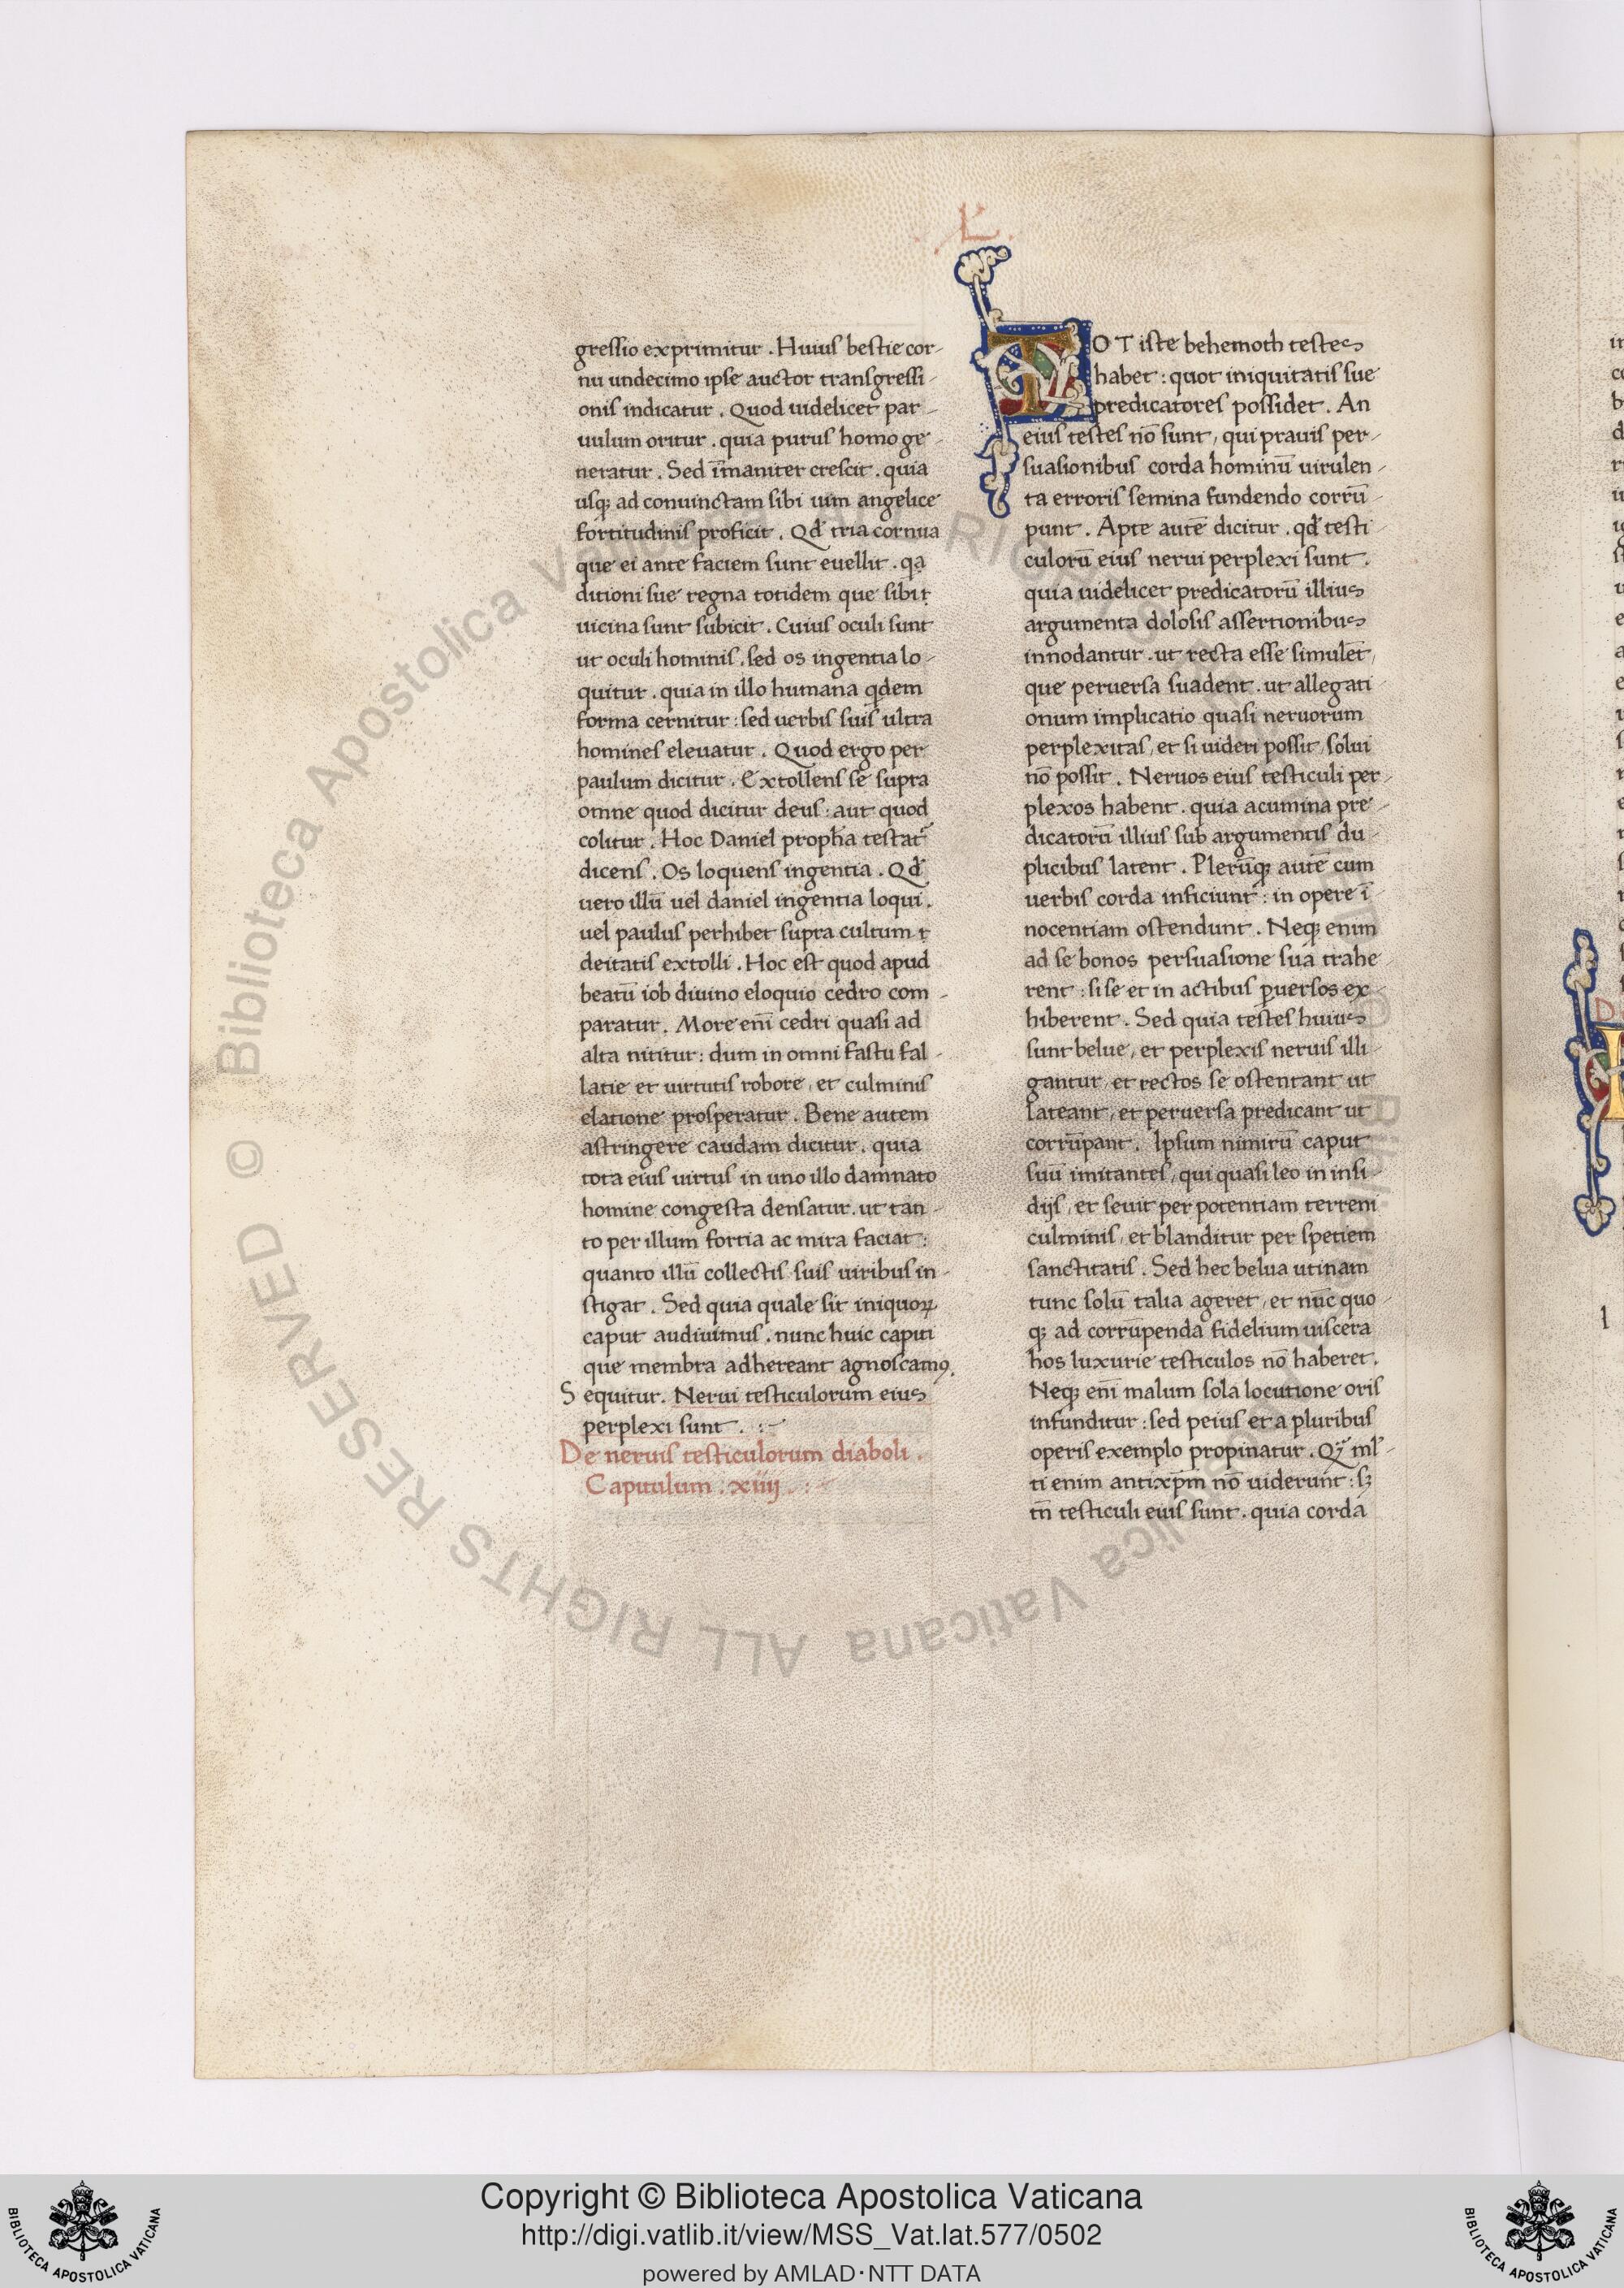 .L.
gressio exprimitur . Huius bestie cor-
nu undecimo ipse auctor transgressi-
onis indicatur . Quod uidelicet par-
uulum oritur . quia purus homo ge-
neratur . Sed īmaniter crescit . quia
usq; ad conuinctam sibi uim angelice
fortitudinis proficit . Qđ tria cornua
que ei ante faciem sunt euellit . qa
ditioni sue regna totidem que sibi
uicina sunt subicit . Cuius oculi sunt
ut oculi hominis . sed os ingentia lo-
quitur . quia in illo humana qdem
forma cernitur : sed uerbis suis ultra
homines eleuatur . Quod ergo per
paulum dicitur . Extollens se supra
omne quod dicitur deus : aut quod
colitur . Hoc Daniel propħa testat̄
dicens . Os loquens ingentia . Qđ
uero illū uel daniel ingentia loqui .
uel paulus perhibet supra cultum
deitatis extolli . Hoc est quod apud
beatū iob diuino eloquio cedro com-
paratur . More enī cedri quasi ad
alta nititur : dum in omni fastu fal-
latie et uirtutis robore , et culminis
elatione prosperatur . Bene autem
astringere caudam dicitur . quia
tota eius uirtus in uno illo damnato
homine congesta densatur . ut tan-
to per illum fortia ac mira faciat :
quanto illū collectis suis uiribus in-
stigat . Sed quia quale sit iniquoꝝ
caput audiuimus . nunc huic capiti
que membra adhereant agnoscamꝰ.
Sequitur . Nerui testiculorum eius
perplexi sunt . :~
De neruis testiculorum diaboli .
Capitulum . xiiij . :
TOT iste behemoth testes
habet : quot iniquitatis sue
predicatores possidet . An
eius testes nō sunt , qui prauis per-
suasionibus corda hominū uirulen-
ta erroris semina fundendo corrū-
punt . Apte autē dicitur . qđ testi
culorū eius nerui perplexi sunt .
quia uidelicet predicatorū illius
argumenta dolosis assertionibus
innodantur . ut recta esse simulēt ,
que peruersa suadent . ut allegati
onum implicatio quasi neruorum
perplexitas , et si uideri possit , solui
nō possit . Neruos eius testiculi per-
plexos habent . quia acumina pre-
dicatorū illius sub argumentis du-
plicibus latent . Plerūq; autē cum
uerbis corda inficiunt : in opere ī
nocentiam ostendunt . Neq; enim
ad se bonos persuasione sua trahe-
rent : si se et in actibus ꝑuersos ex-
hiberent . Sed quia testes huius
sunt belue , et perplexis neruis illi-
gantur , et rectos se ostentant ut
lateant , et peruersa predicant ut
corrūpant . Ipsum nimirū caput
suū imitantes , qui quasi leo in insi-
dijs , et seuit per potentiam terreni
culminis , et blanditur per spetiem
sanctitatis . Sed hec belua utinam
tunc solū talia ageret , et nūc quo-
q; ad corrūpenda fidelium uiscera
hos luxurie testiculos nō haberet .
Neq; enī malum sola locutione oris
infunditur : sed peius et a pluribus
operis exemplo propinatur . ml-
ti enim antixp̄m nō uiderunt : sꝫ
tn̄ testiculi eius sunt . quia corda
© Biblioteca Apostolica Vaticana ALL RIGHTS RESERVED
Copyright © Biblioteca Apostolica Vaticana
http://digi.vatlib.it/view/MSS_Vat.lat.577/0502
powered by AMLAD·NTT DATA
BIBLIOTECA APOSTOLICA VATICANA
BIBLIOTECA APOSTOLICA VATICANA